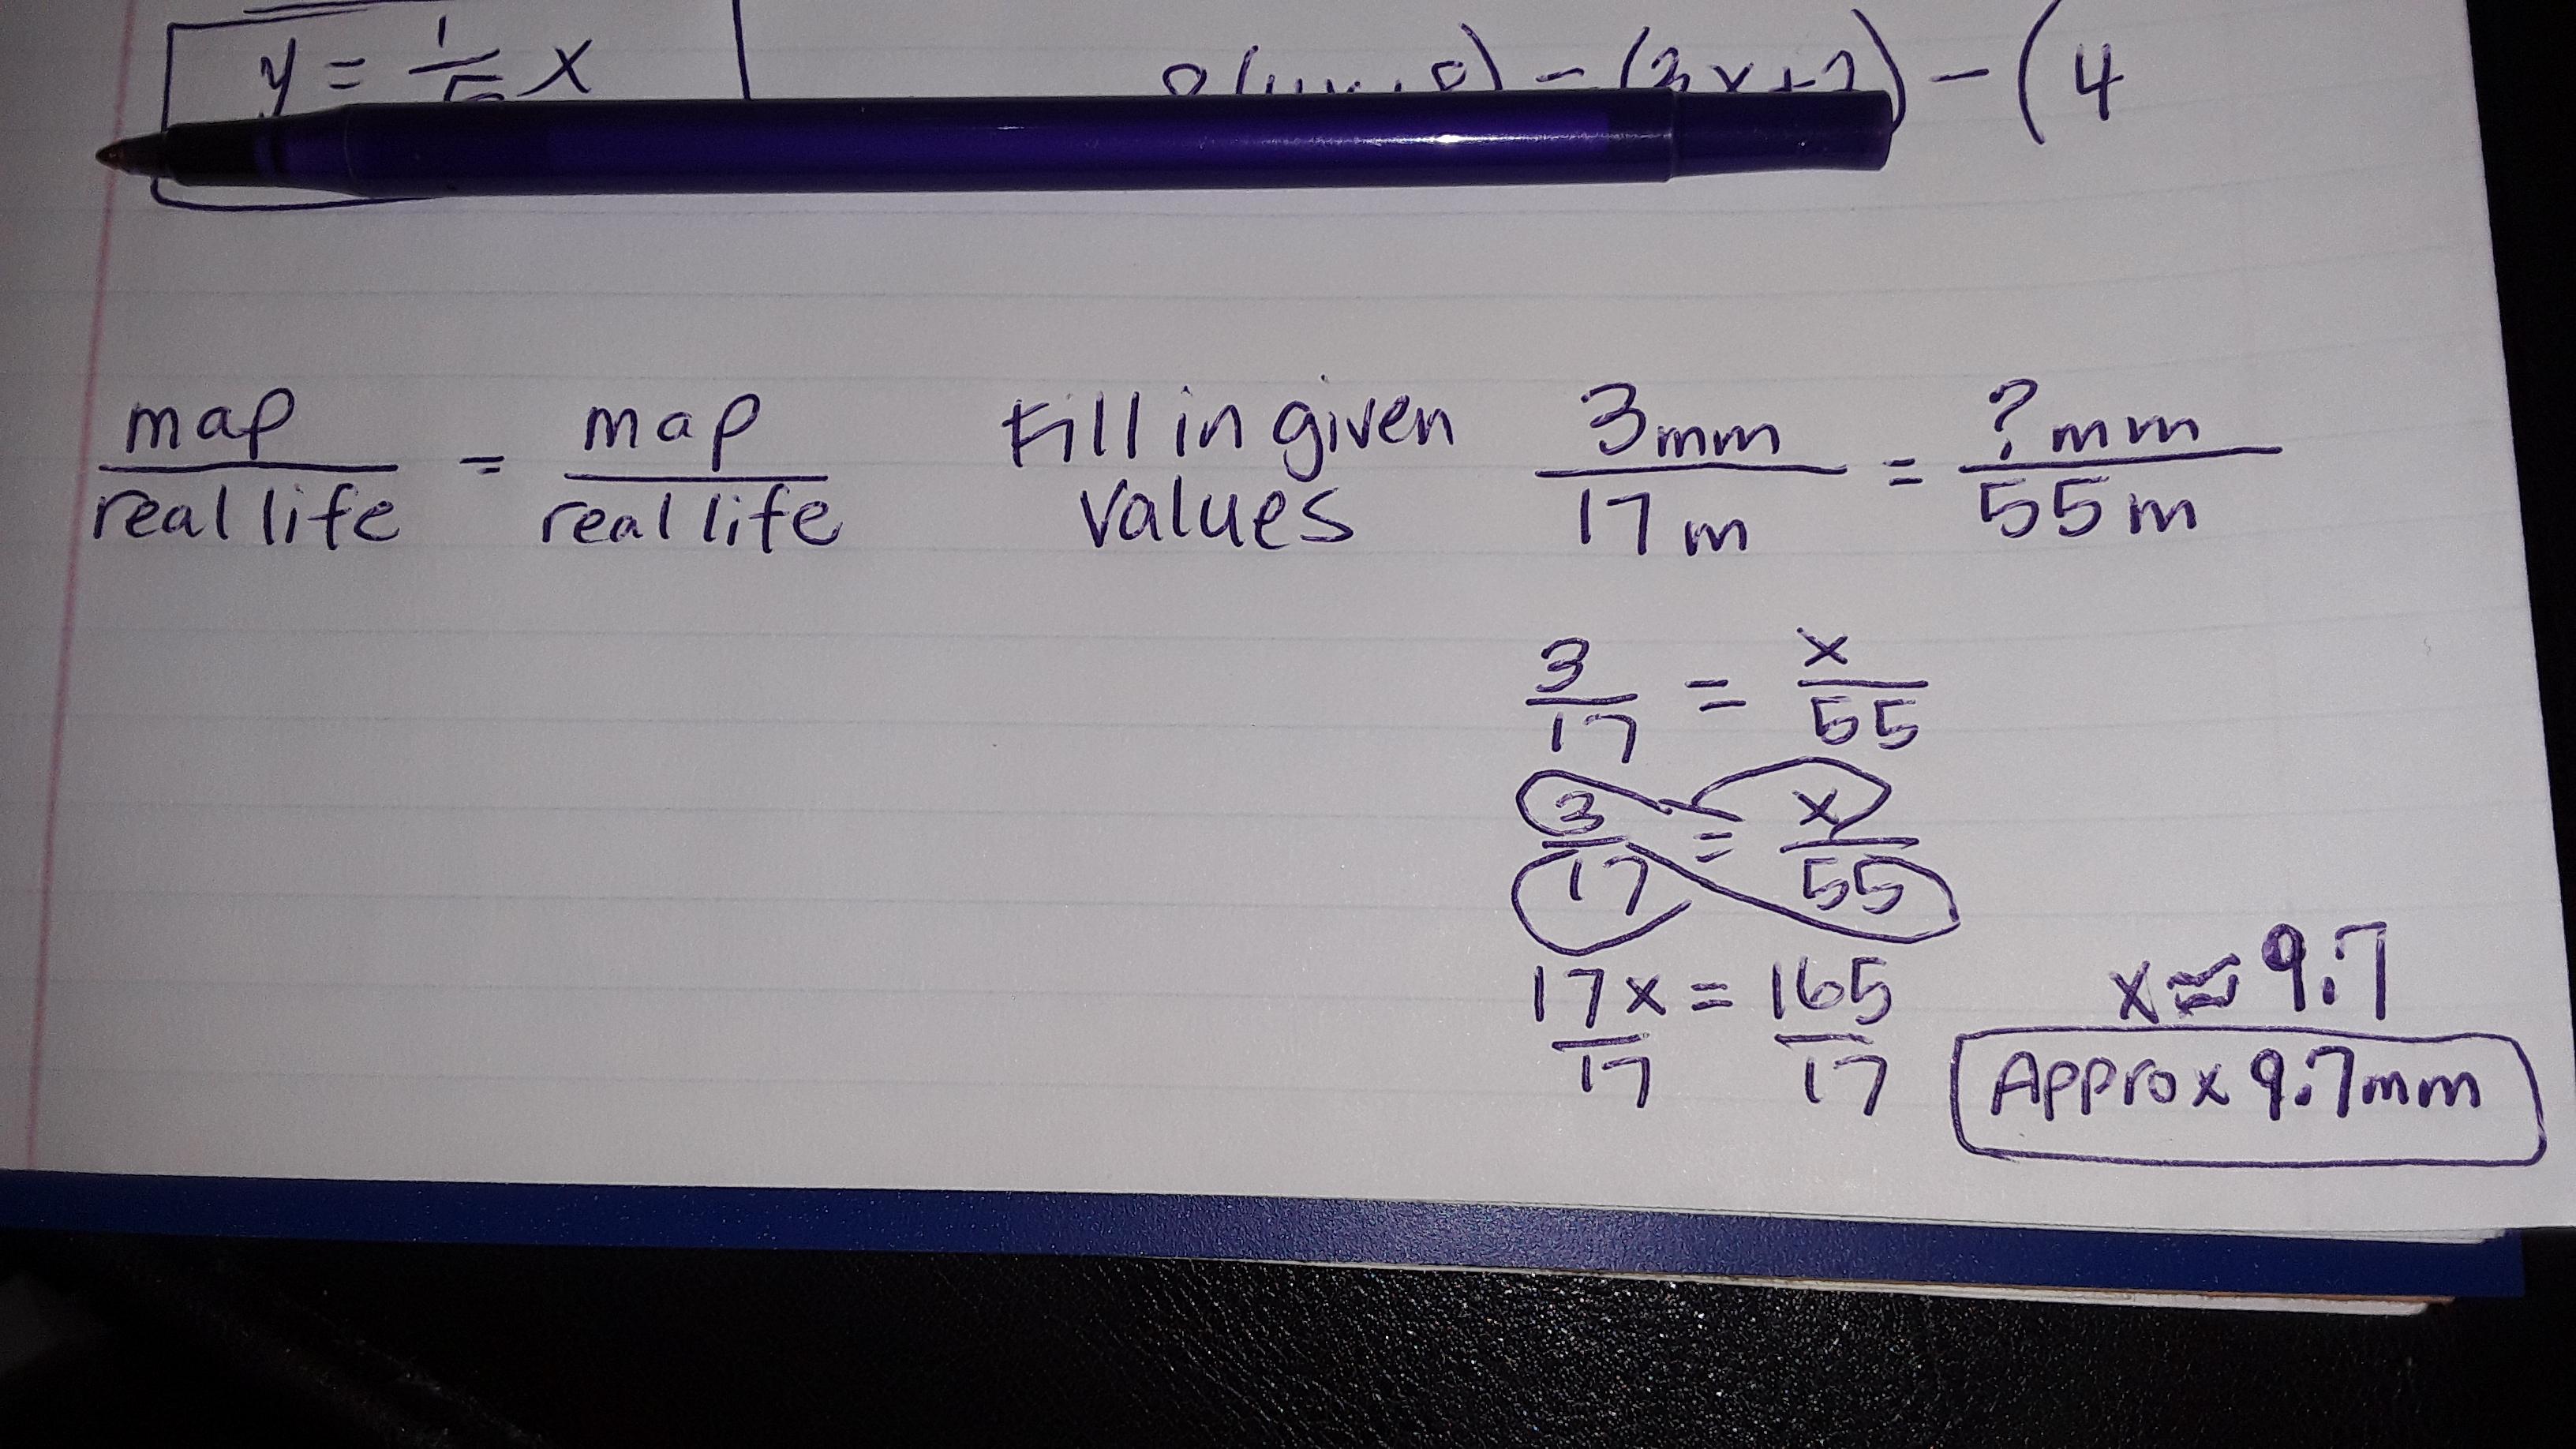 y = 1/5 x
) - (3x+2) - (4
map/real life = map/real life Fill in given values 3mm/17m = ?mm/55m
3/17 = x/55
3/17 = x/55
17x/17 = 165/17 x ≈ 9.7
Approx 9.7mm